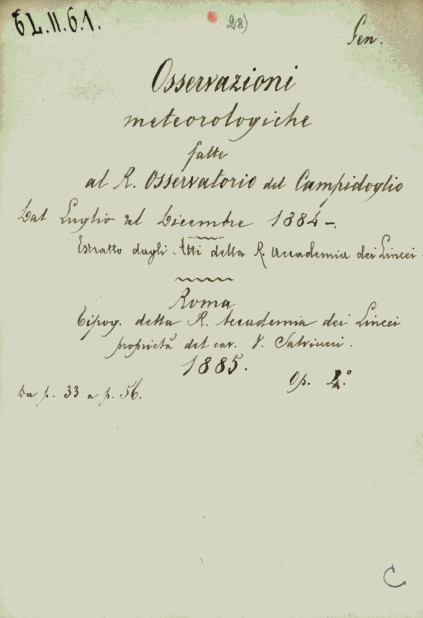 6 L.II.6.1.
28)
Gen.
Osservazioni
meteorologiche
fatte
al R. Osservatorio del Campidoglio
Dal Luglio al Dicembre 1884-.
Estratto dagli Atti della R. Accademia dei Lincei.
Roma
Tipog. della R. Accademia dei Lincei
proprietà del cav. V. Salviucci.
1885.
Op. 2°
Da p. 33 a p. 56.
C